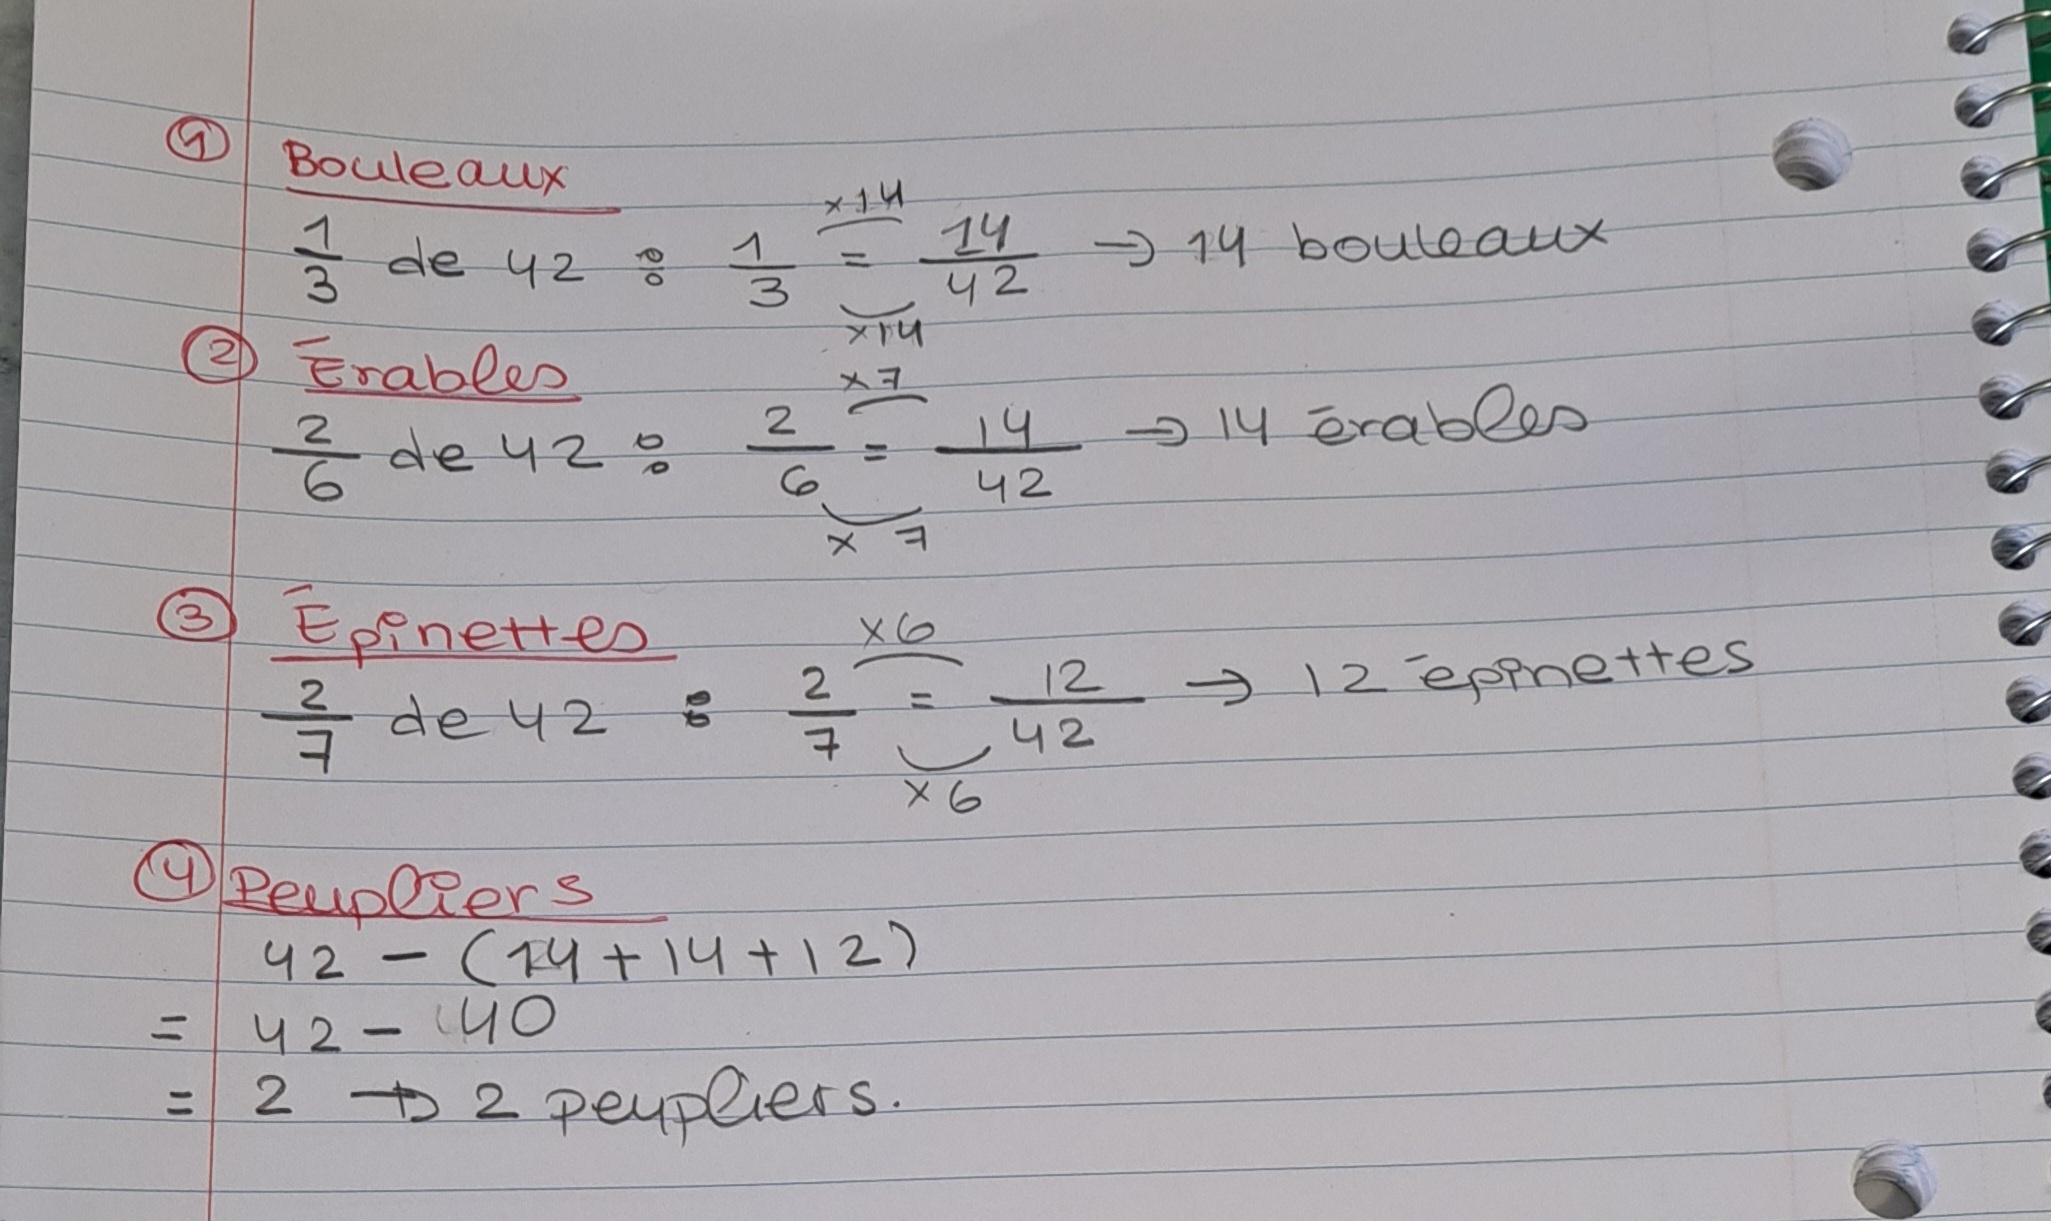 ① Bouleaux
×14
1/3 de 42 : 1/3 = 14/42 → 14 bouleaux
×14
② Érables
×7
2/6 de 42 : 2/6 = 14/42 → 14 érables
×7
③ Épinettes
×6
2/7 de 42 : 2/7 = 12/42 → 12 épinettes
×6
④ Peupliers
42 - (14 + 14 + 12)
= 42 - 40
= 2 → 2 peupliers.